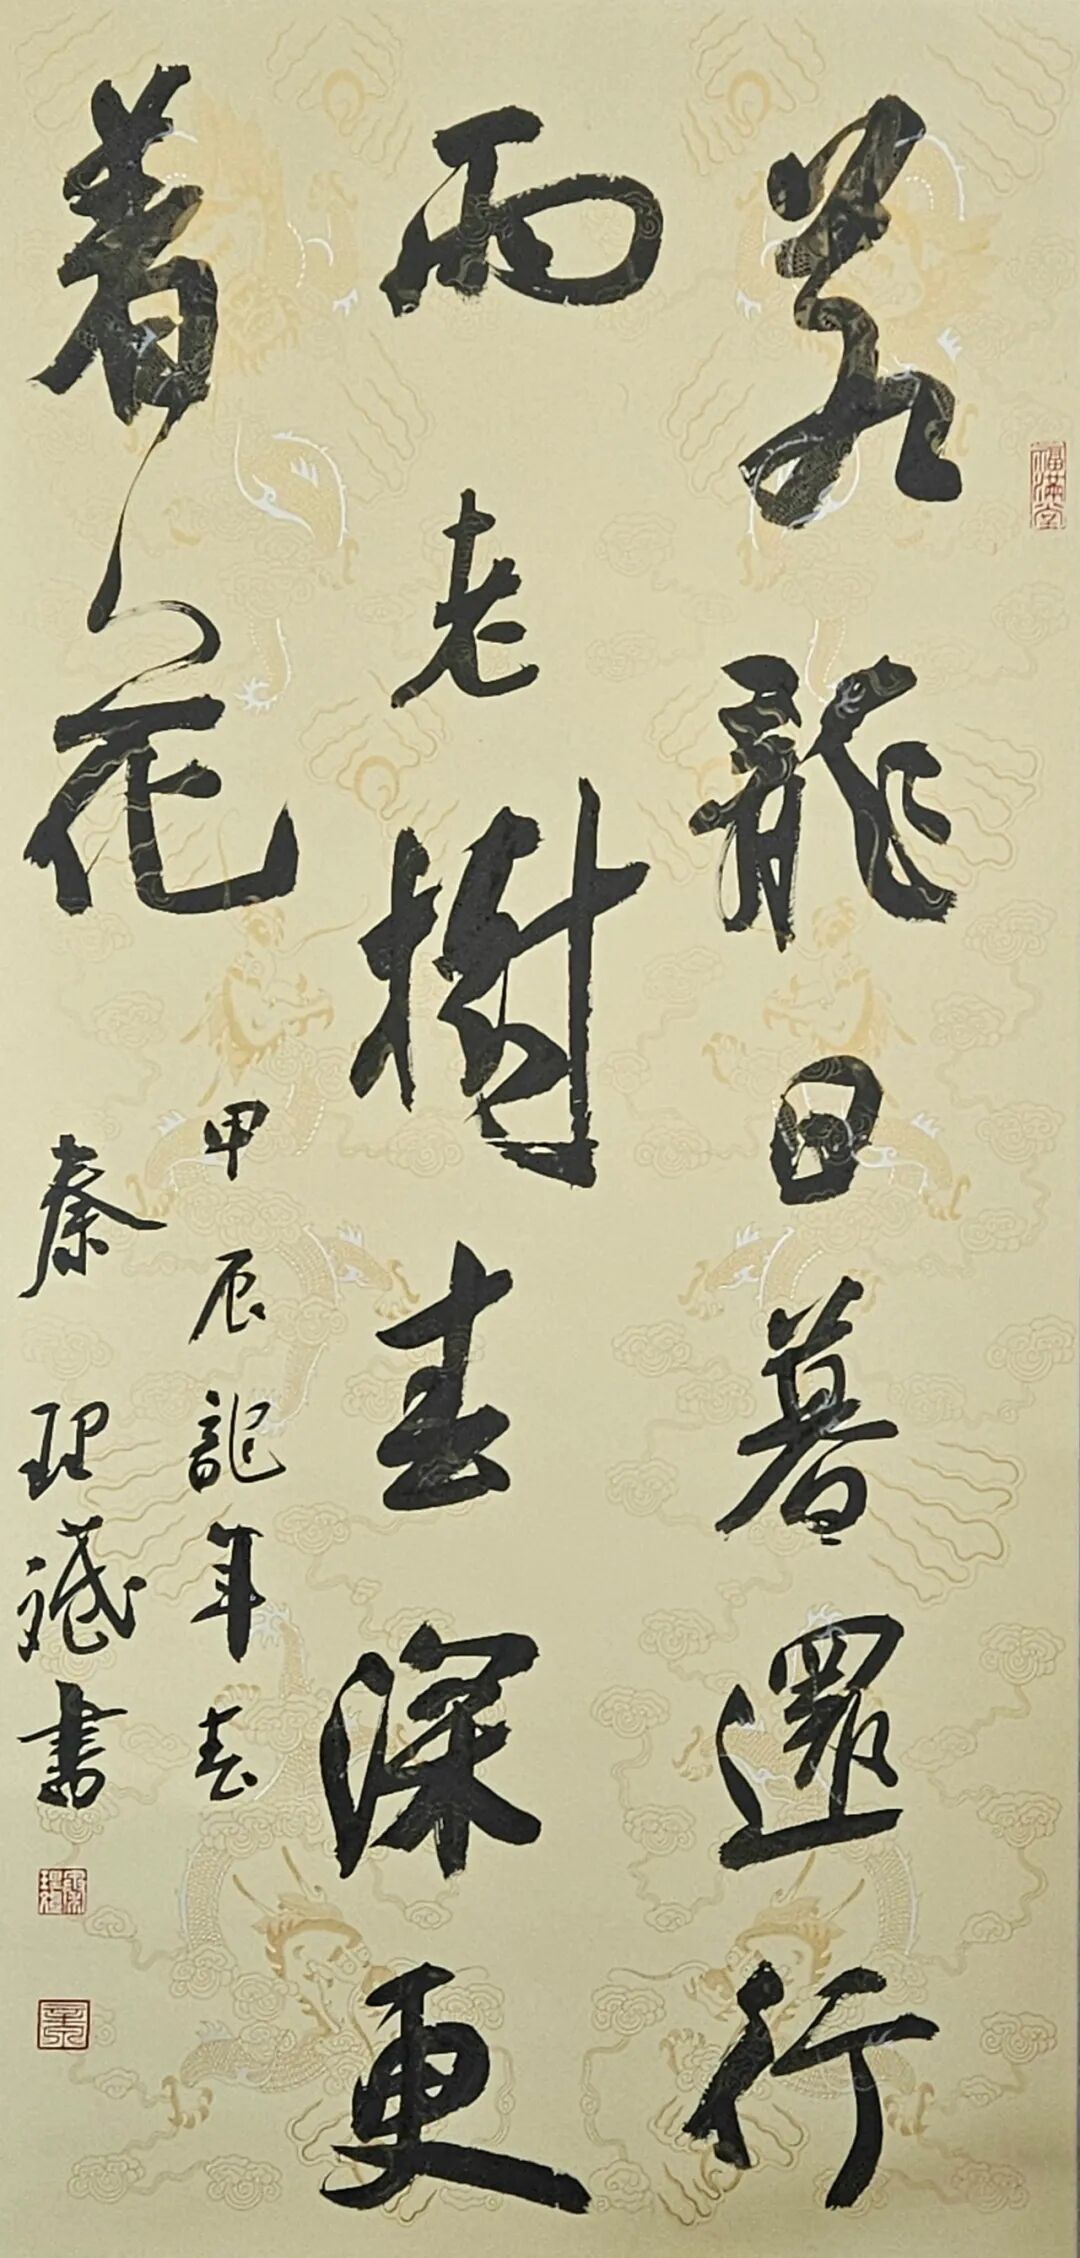 福滿堂
蒼龍日暮還行
雨老樹春深更
著花
甲辰龍年春
秦理書